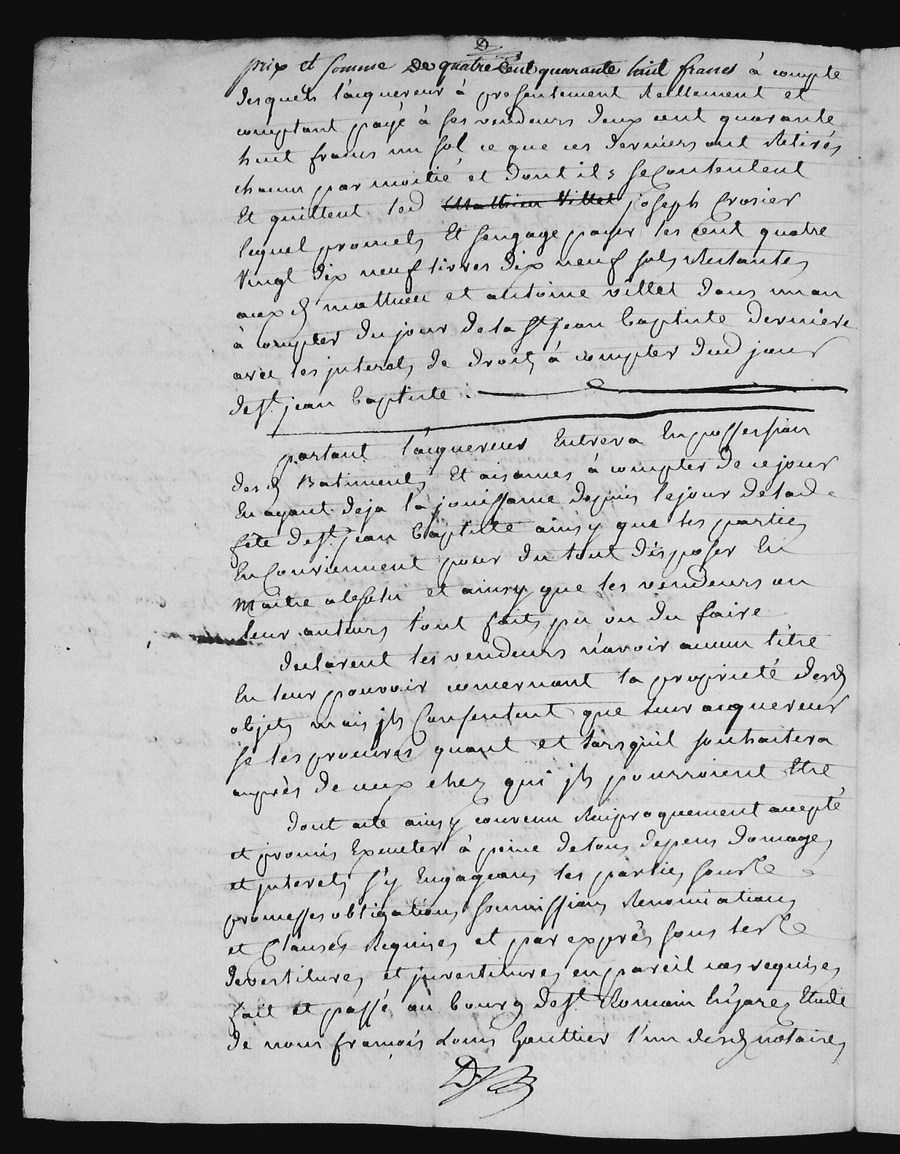 prix et somme de quatre Cent quarante huit francs à compte
desquels l'acquereur à presentement Reellement et
comptant payé à ses vendeurs deux cent quarante
huit francs un sol ce que ces derniers ont Retirés
chacun par moitié et dont ils se Contentent
Et quittent led Matthieu Villet joseph Crosier
lequel promet Et s'engage payer les cent quatre
Vingt dix neuf livres dix neuf sols Restantes
auxd matthieu et antoine villet dans un an
à compter du jour de la St jean Baptiste derniere
avec les jnterets de droit à compter dud jour
de St jean Baptiste :
partant l'acquereur Entrera En possession
desd Batiments Et aisances à compter de ce jour
En ayant deja la jouissance depuis le jour de lad
fête de St jean Baptiste ainsy que les parties
En Conviennent pour du tout disposer En
Maitre absolu et ainsy que les vendeurs ou
leur auteurs l'ont fait, pu ou du faire
declarent les vendeurs n'avoir aucun titre
En leur pouvoir concernant la propriété desd
objets mais jls Consentent que leur acquereur
se les procures quant et lorsquil souhaitera
auprès de ceux chez qui jls pourroient Etre
dont acte ainsy convenu Reciproquement accepté
et promis Executer à peine de tous depens domages
et jnterets s'y Engageans les parties sous les
promesses obligations soumissions Renonciations
et Clauses Requises et par exprès sous les
devestitures et jnvestitures en pareil cas requises
fait et passé au bourg de St Romain En jarez Etude
de nous françois Louis Gaultier l'un desd notaires